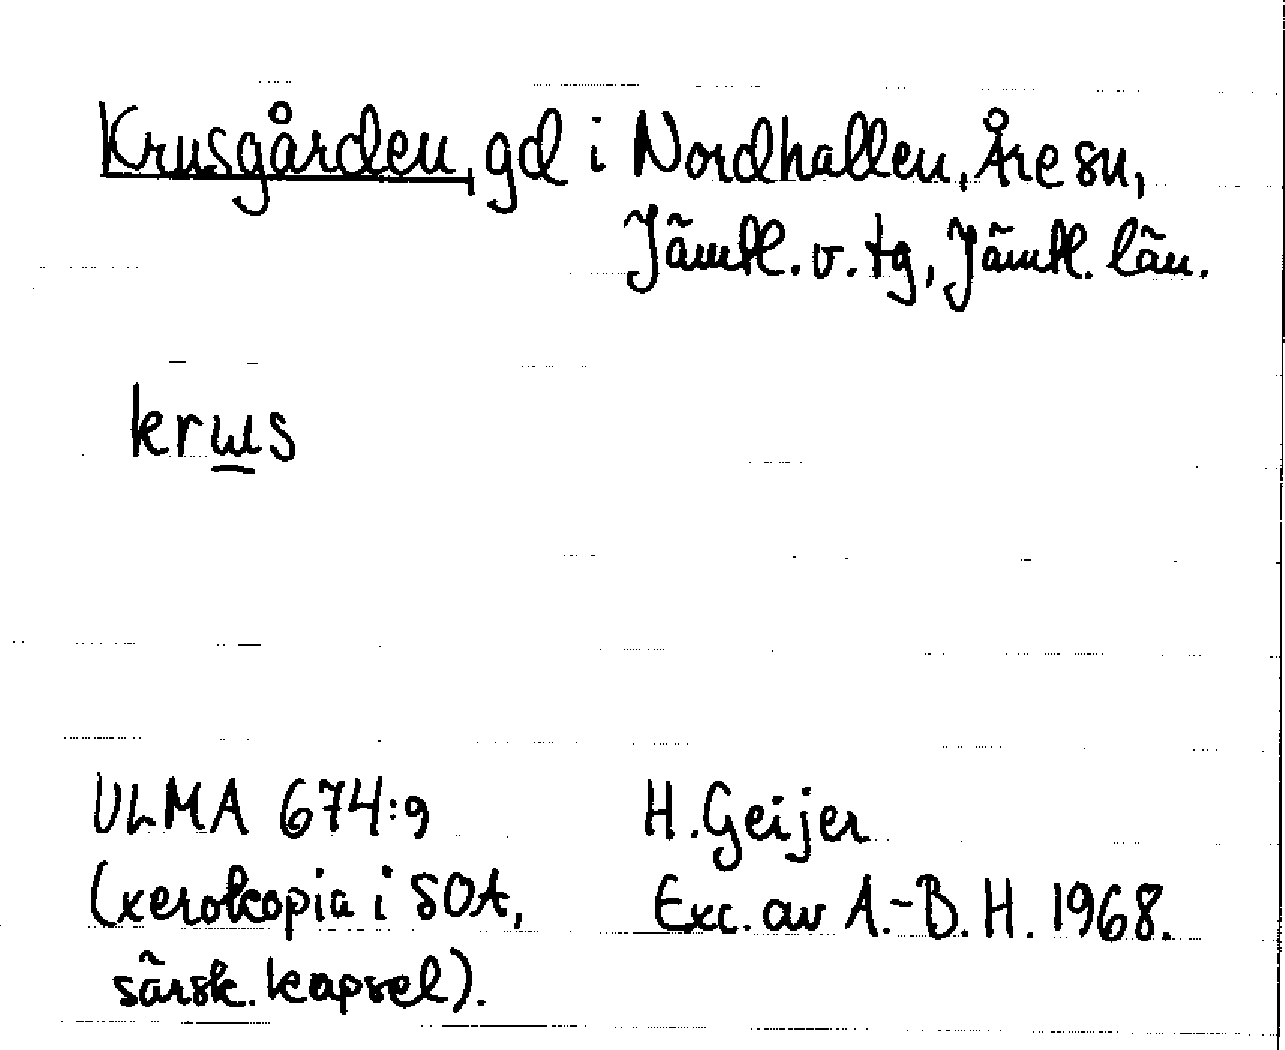 Krusgården, gd i Nordhallen, Åre sn,
Jämtl. v. tg, Jämtl. län.
krɯs
ULMA 674:9
(xerokopia i SOA,
särsk. kapsel).
H. Geijer
Exc. av A.-B. H. 1968.